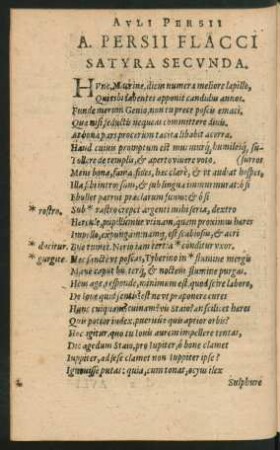 AVLI PERSII
A. PERSII FLACCI
SATYRA SECVNDA.
HVnc, Macrine, diem numera meliore lapillo,
Qui tibi labentes apponit candidus annos.
Funde merum Genio, non tu prece poscis emaci,
Quæ nisi seductis nequeas committere diuis,
At bona pars procerum tacita libabit acerra.
Haud cuiuis promptum est murmurq́;, humilesq́; su-
Tollere de templis, & aperto viuere voto. (surros
Mens bona, fama, fides, hæc clarè, & vt audiat hospes,
Illa sibi introrsum, & sub lingua immurmurat: ô si
Ebullet patrui præclarum funus: & ô si
rastro. Sub * rastro crepet argenti mihi seria, dextro
Hercule, pupillumúe vtinam, quem proximus heres
Impello, expungam: namq́; est scabiosus, & acri
ducitur. Bile tumet. Nerio iam tertia * conditur vxor.
gurgite. Hæc sanctè vt poscas, Tyberino in * flumine mergis
Mane caput bis terq́;, & noctem flumine purgas.
Heus age, responde, minimum est, quod scire laboro,
De Ioue quid sentis? est ne vt præponere cures
Hunc cuiquam? cuinam? vis Staio? an scilicet heres
Quis potior iudex, puerisúe quis aptior orbis?
Hoc igitur, quo tu Iouis aurem impellere tentas,
Dic agedum Staio, pro Iupiter, ô bone clamet
Iuppiter, ad sese clamet non Iuppiter ipse?
Ignouisse putas? quia, cum tonat, ocyus ilex
Sulphure